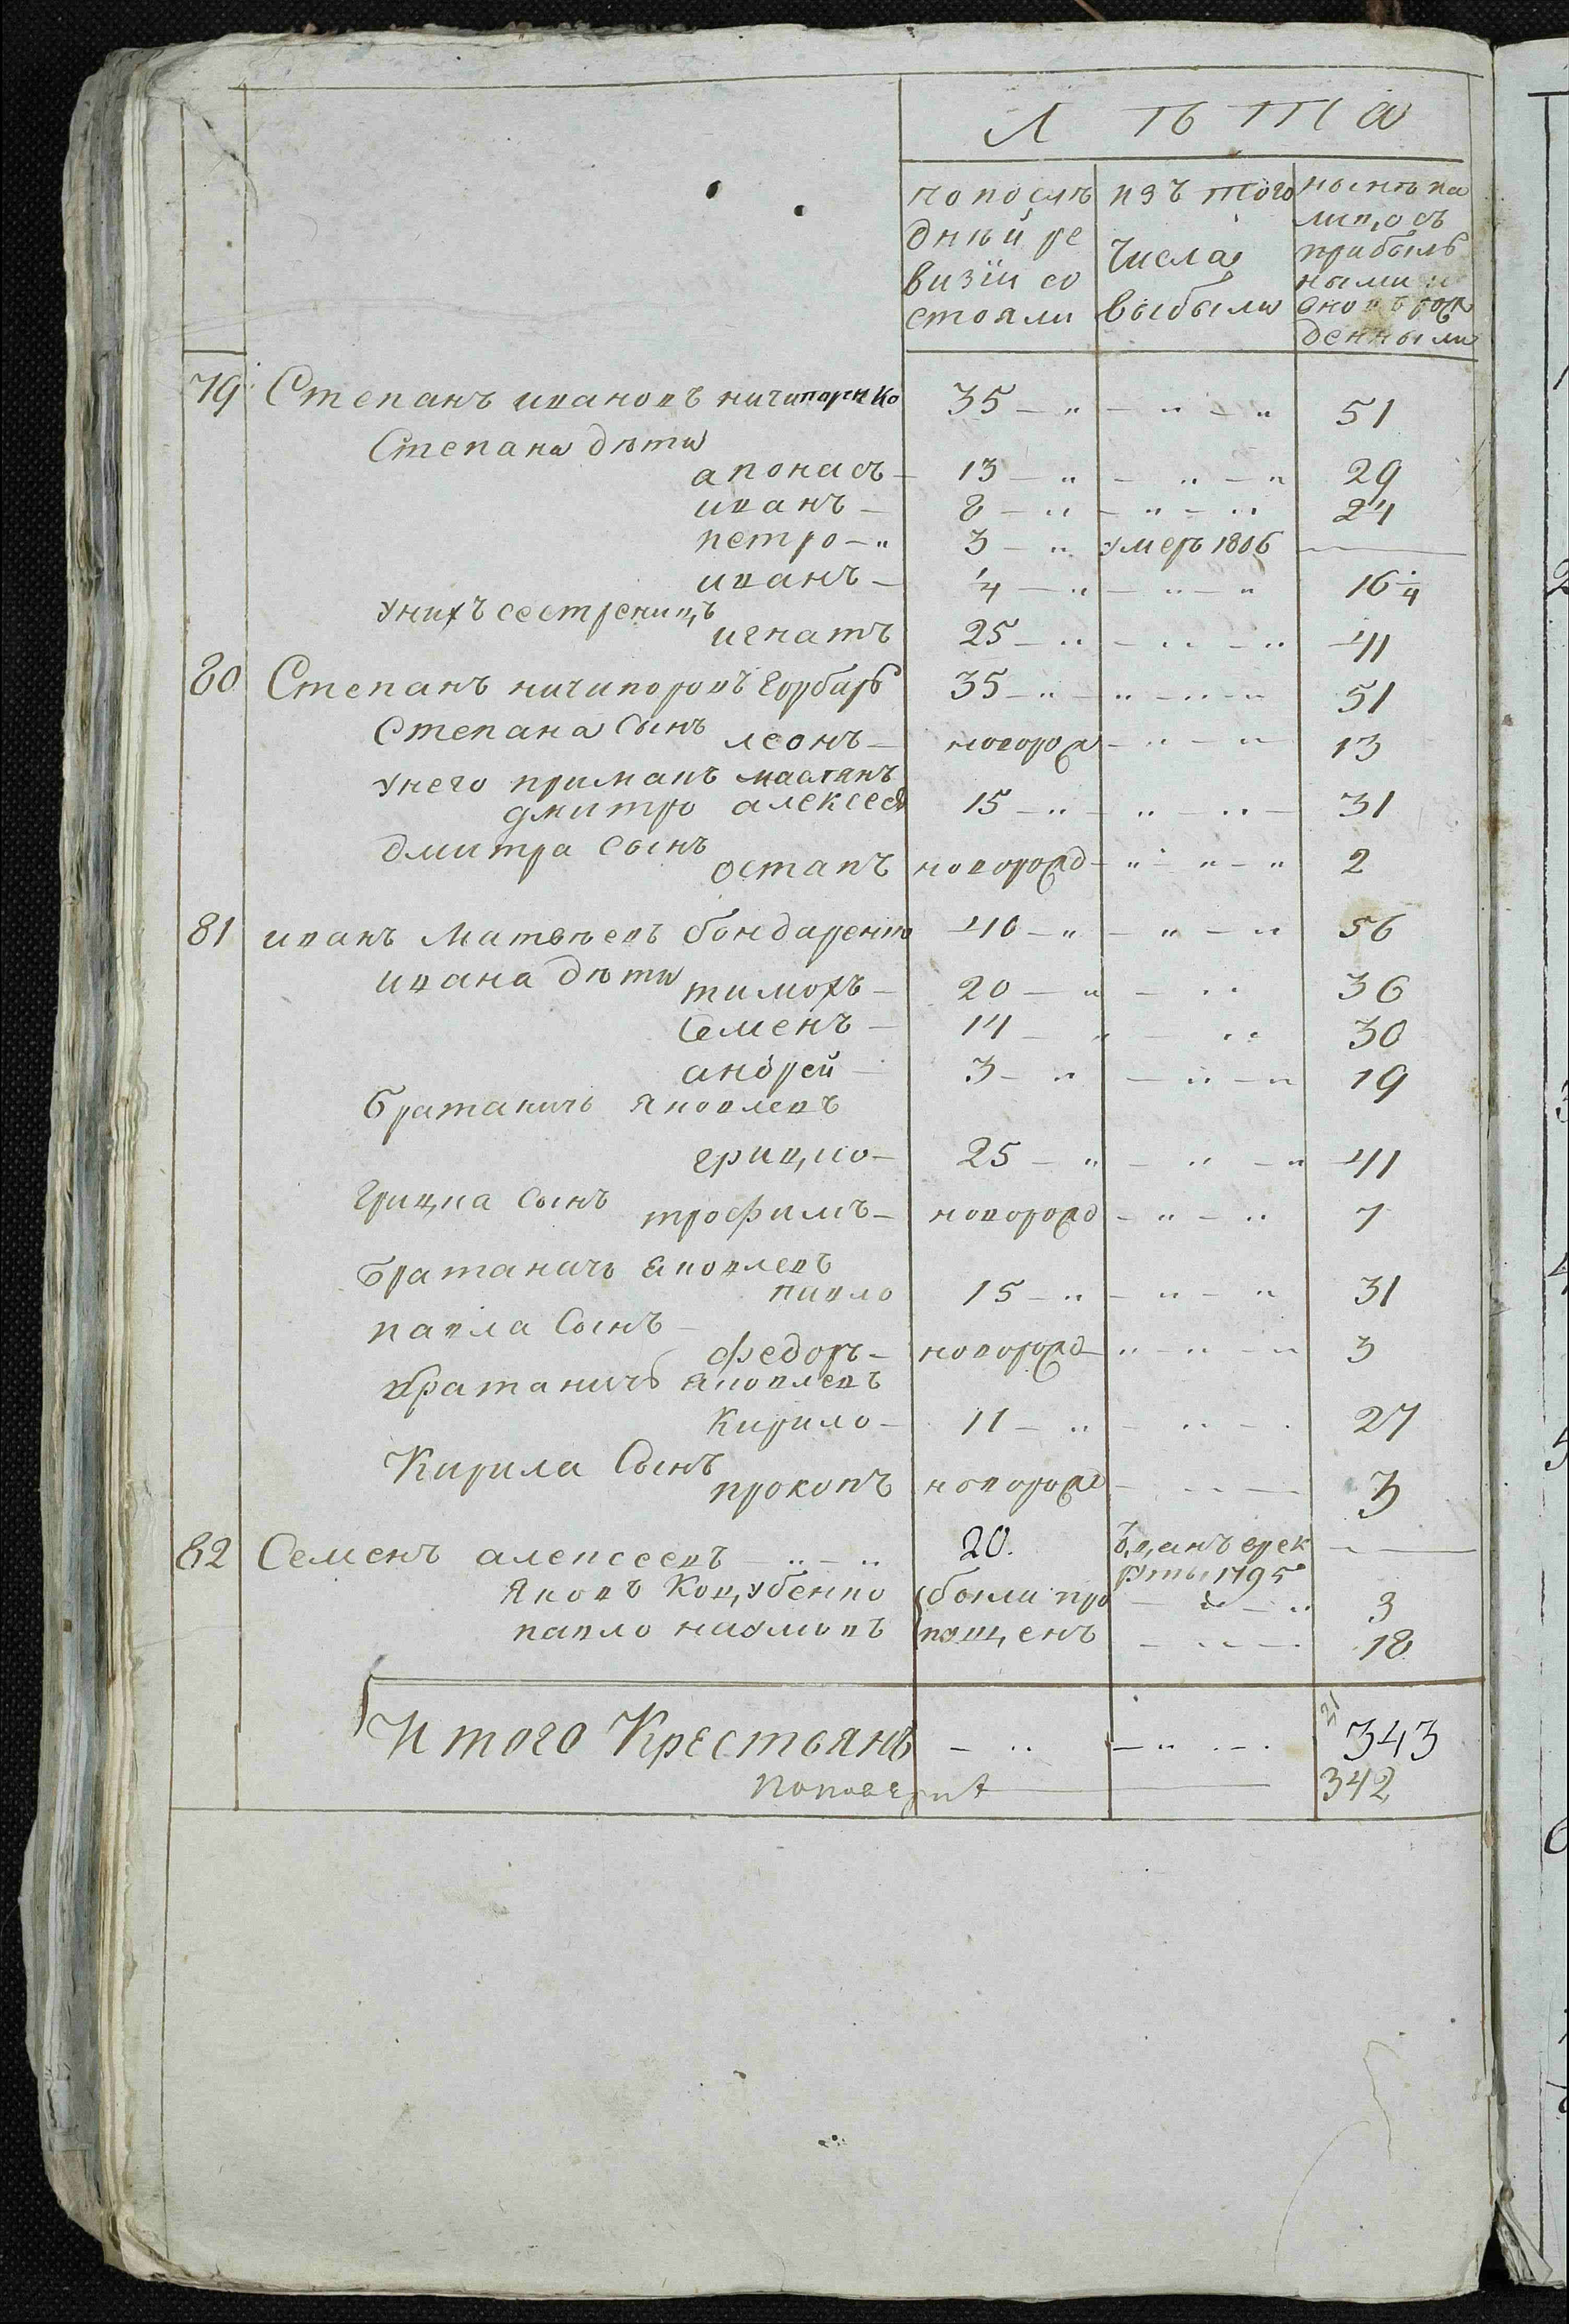 Лѣта
по послѣ
дный ре
визіи со
стояли
изъ того
числа
выбыли
нынѣ на
лицо съ
прибыль
ными и
вновь рож
денными
79 Степанъ ивановъ ничипоренко 35 51
Степана дѣти
апонасъ 13 29
иванъ 8 24
петро 3 умеръ 1806
иванъ ¼ 16 ¼
У нихъ сестреницъ
игнатъ 25 41
80 Степанъ ничипоровъ горбарь 35 51
Степана сынъ леонъ новорож 13
У него приманъ
дмитро алексеев 15 31
дмитра сынъ
остапъ новорожд 2
81 иванъ Матвѣевъ бондаренко 40 56
ивана дѣти тимохъ 20 36
Семенъ 14 30
андрей 3 19
братаничъ яковлевъ
грицко 25 41
грицка сынъ трофимъ новорожд 7
братаничъ яковлевъ
павло 15 31
павла сынъ
федоръ новорожд 3
братаничъ яковлевъ
Кирило 11 27
Кирила Сынъ
прокопъ новорожд 3
82 Семенъ алексеевъ 20.
рекруты 1795
Яковъ Коцубенко были про 3
павло наумовъ пущенъ 18
21
Итого Крестьянъ 343
342